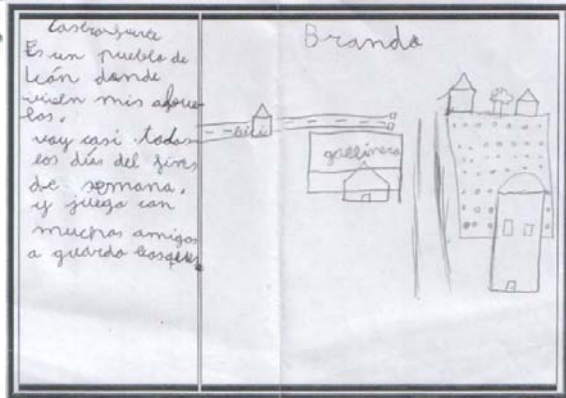 Castrofuerte
Es un pueblo de
león donde
vien mis abue
los.
voy casi todos
los días del fins
de semana.
y juego con
muchos amigos
a guarda bosques
Brando
gallinero